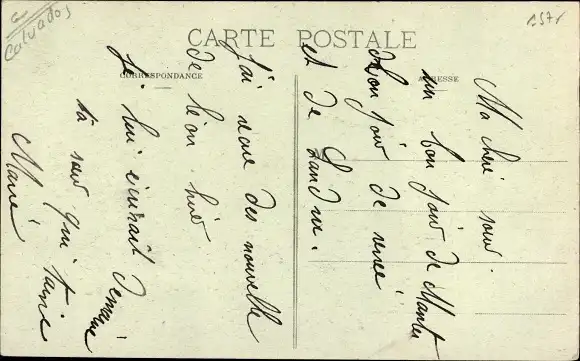 Calvados
1571
CARTE POSTALE
CORRESPONDANCE
ADRESSE
Ma cheré sœur
un bon jour de Mantes
bon jour de renée
et de
J'ai recue des nouvelle
de léon hier
je lui écrirait demain
ta sœur qui t'aime
Marie